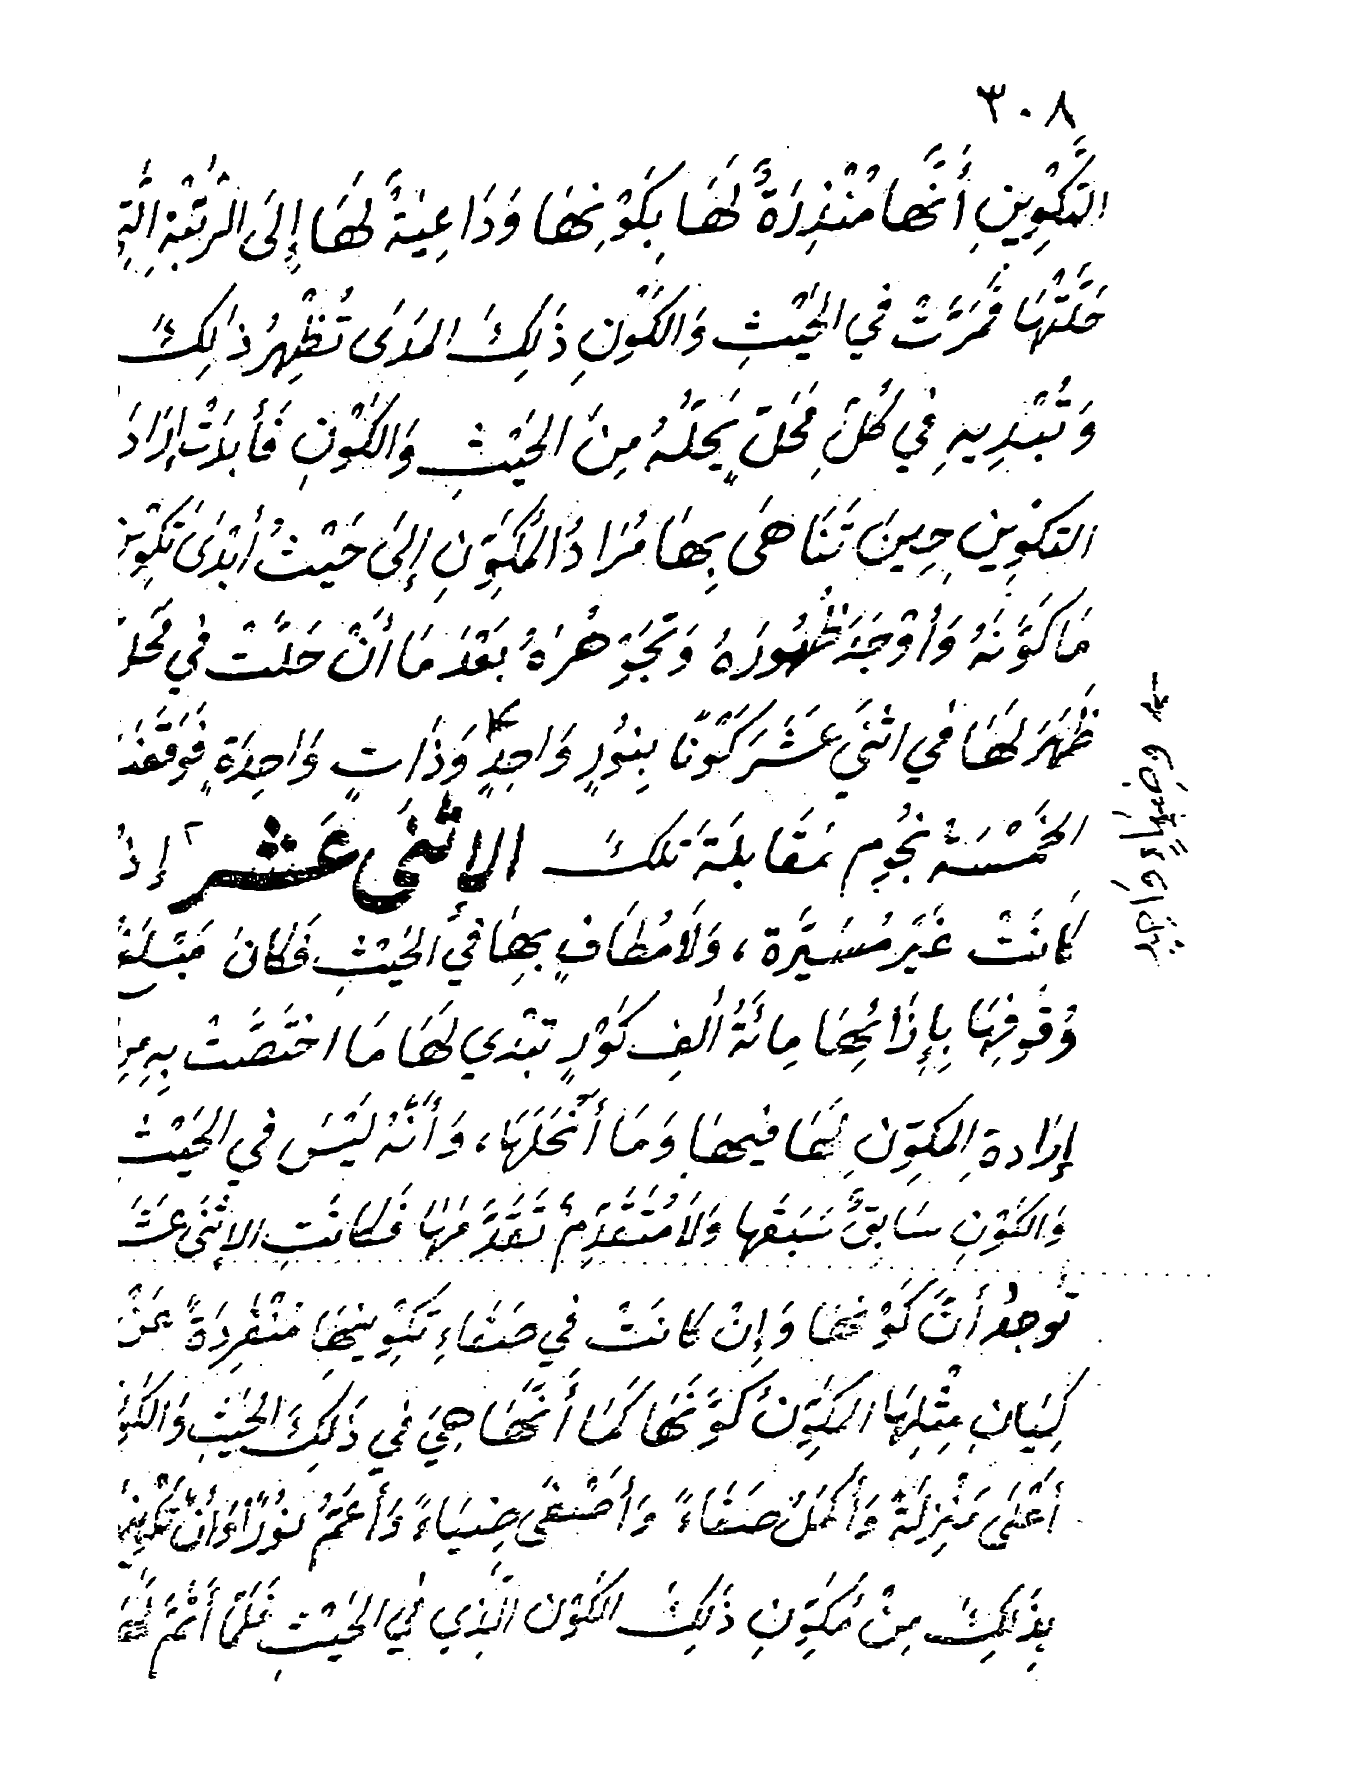 ٣٠٨
التَّكْوِينِ أَنَّهَا مُنْذِرَةٌ لَهَا بِكَوْنِهَا وَدَاعِيَةٌ لَهَا إِلَى الرُّتْبَةِ الَّتِي
حَلَّتْهَا فَمَرَّتْ فِي الحَيْثِ وَالكَوْنِ ذَلِكَ المَدَى تُظْهِرُ ذَلِكَ
وَتُبْدِيهِ فِي كُلِّ مَحَلٍّ يَحَلُّهُ مِنَ الحَيْثِ وَالكَوْنِ فَأَبَدَتْ إِرَادَ
التكوِينِ حِينَ تَنَاهَى بِهَا مُرَادُ المُكَوِّنِ إِلَى حَيْثُ أَبْدَى تَكْوِين
مَا كَوَّنَهُ وَأَوْجَدَ ظُهُورَهُ وَتَجَوْهُرَهُ بَعْدَ مَا أَنْ حَلَّتْ فِي مَحَلّ
ظَهَرَ لَهَا فِي اثْنَي عَشَرَ كَوْنًا بِنُورٍ وَاحِدٍ وَذَاتٍ وَاحِدَةٍ فَوَقَفَت
وَضِيَاءٍ وَاحِدٍ
الخَمْسَةُ نُجُومِ بمَقَابَلَةِ تلكَ الاثْنَى عَشَر إِذ
كَانَتْ غَيْرَ مُسَيَّرَة، وَلَا مُطَافٍ بِهَا فِي الحَيْثِ فَكَانَ مَبْلَغُ
وُقُوفِهَا بِإِزَائِهَا مِائَةُ أَلْفِ كَوْرٍ تبْدِي لَهَا مَا اخْتَصَّتْ بِهِ مِن
إِرَادة المكوِّنِ لَهَا فيهَا وَمَا أَنْحَلَهَا، وَأَنَّهُ لَيْسَ فِي الحَيْثِ
وَالكَوْنِ سَابِقٌ سَبَقَها وَلَا مُتَقَدِّمٌ تَقَدَّمَهَا فَكَانَتِ الاثْنَي عَشَ
تُوجِدُ أَنَّ كَوْنَهَا وَإِنْ كَانَتْ فِي صَفَاءِ تَكْوِينِهَا مُنْفَرِدَةً عَنْ
كِيَانِ مِثْلِهَا المكَوِّنُ كَوَّنَهَا كَمَا أَنَّهَا هِيَ فِي ذَلِكَ الحَيْثِ وَالكَوْنِ
أَعْلَى مَنْزِلَةً وَأَكْمَلُ صَفَاءً وَأَصْفَى ضِيَاءً وَأَعَمُّ نُورًا وَأَنَّ
بِذَلِكَ مِنْ مُكَوِّنِ ذَلِكَ الكَوْنِ الَّذِي فِي الحَيْثِ فَلَمَّا أَتَمَّ